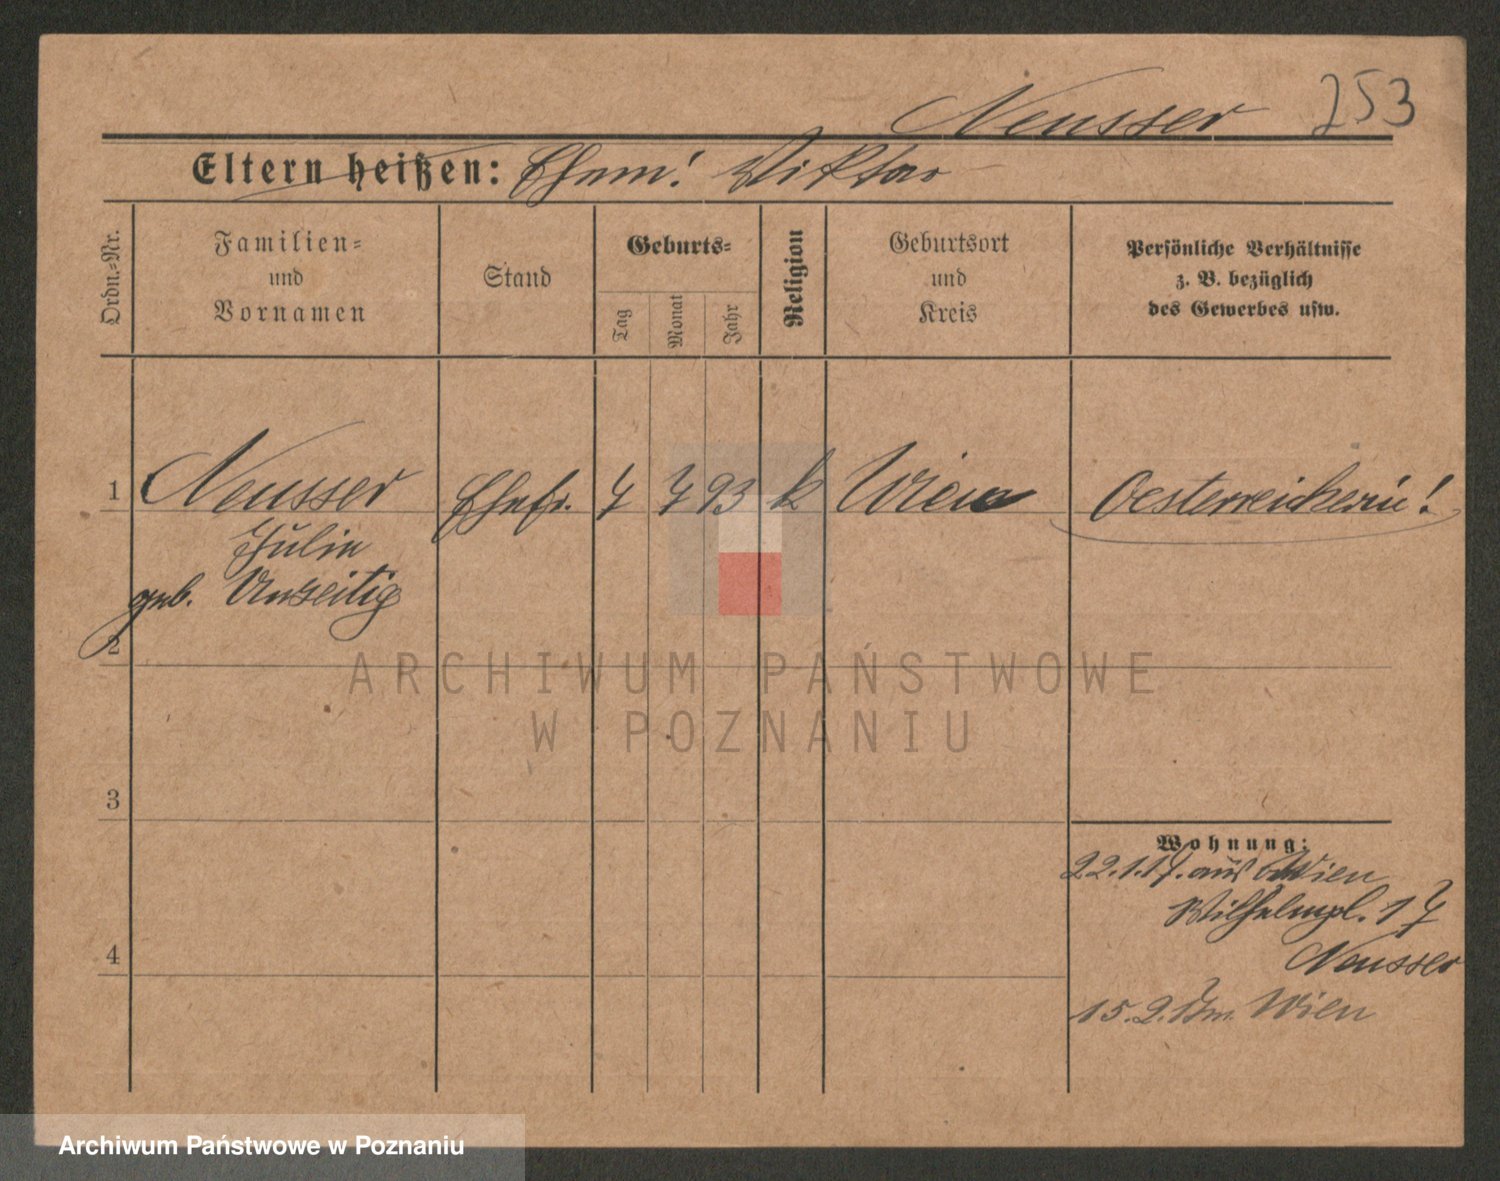 Neusser 253
Eltern heißen: Ehem! Viktor
Ordn.-Nr.
Familien-
und
Vornamen
Stand
Geburts-
Tag
Monat
Jahr
Religion
Geburtsort
und
Kreis
Persönliche Verhältnisse
z. B. bezüglich
des Gewerbes usw.
1 Neusser Ehefr. 7 7 93 k Wien Oesterreicherin!
Julie
geb. Unzeitig
2
ARCHIWUM PAŃSTWOWE
W POZNANIU
3
Wohnung:
22.1.17. aus Wien
Wilhelmpl. 17
Neusser
4
15.2.17 Wien
Archiwum Państwowe w Poznaniu